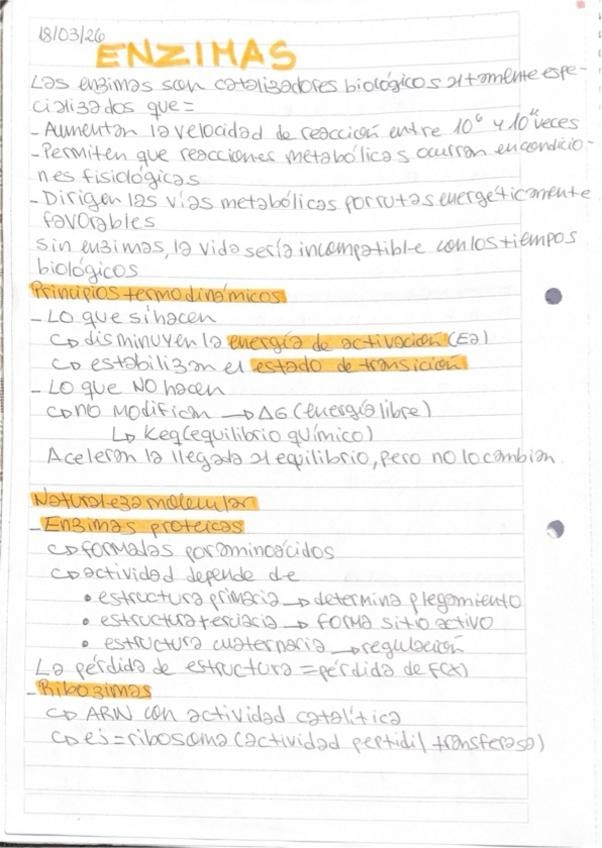 18/03/26
ENZIMAS
Las enzimas son catalizadores biológicos altamente espe-
cializados que=
- Aumentan la velocidad de reacción entre 10⁶ y 10¹² veces
- Permiten que reacciones metabólicas ocurran en condicio-
nes fisiológicas
- Dirigen las vías metabólicas por rutas energéticamente
favorables
sin enzimas, la vida sería incompatible con los tiempos
biológicos
Principios termodinámicos
- Lo que si hacen
↳ disminuyen la energía de activación (Ea)
↳ estabilizan el estado de transición
- Lo que NO hacen
↳ no modifican → ΔG (energía libre)
↳ Keq (equilibrio químico)
Aceleran la llegada al equilibrio, pero no lo cambian.
Naturaleza molecular
- Enzimas proteicas
↳ formadas por aminoácidos
↳ actividad depende de
• estructura primaria → determina plegamiento
• estructura terciaria → forma sitio activo
• estructura cuaternaria → regulación
La pérdida de estructura = pérdida de f(x)
- Ribozimas
↳ ARN con actividad catalítica
↳ ej = ribosoma (actividad peptidil transferasa)